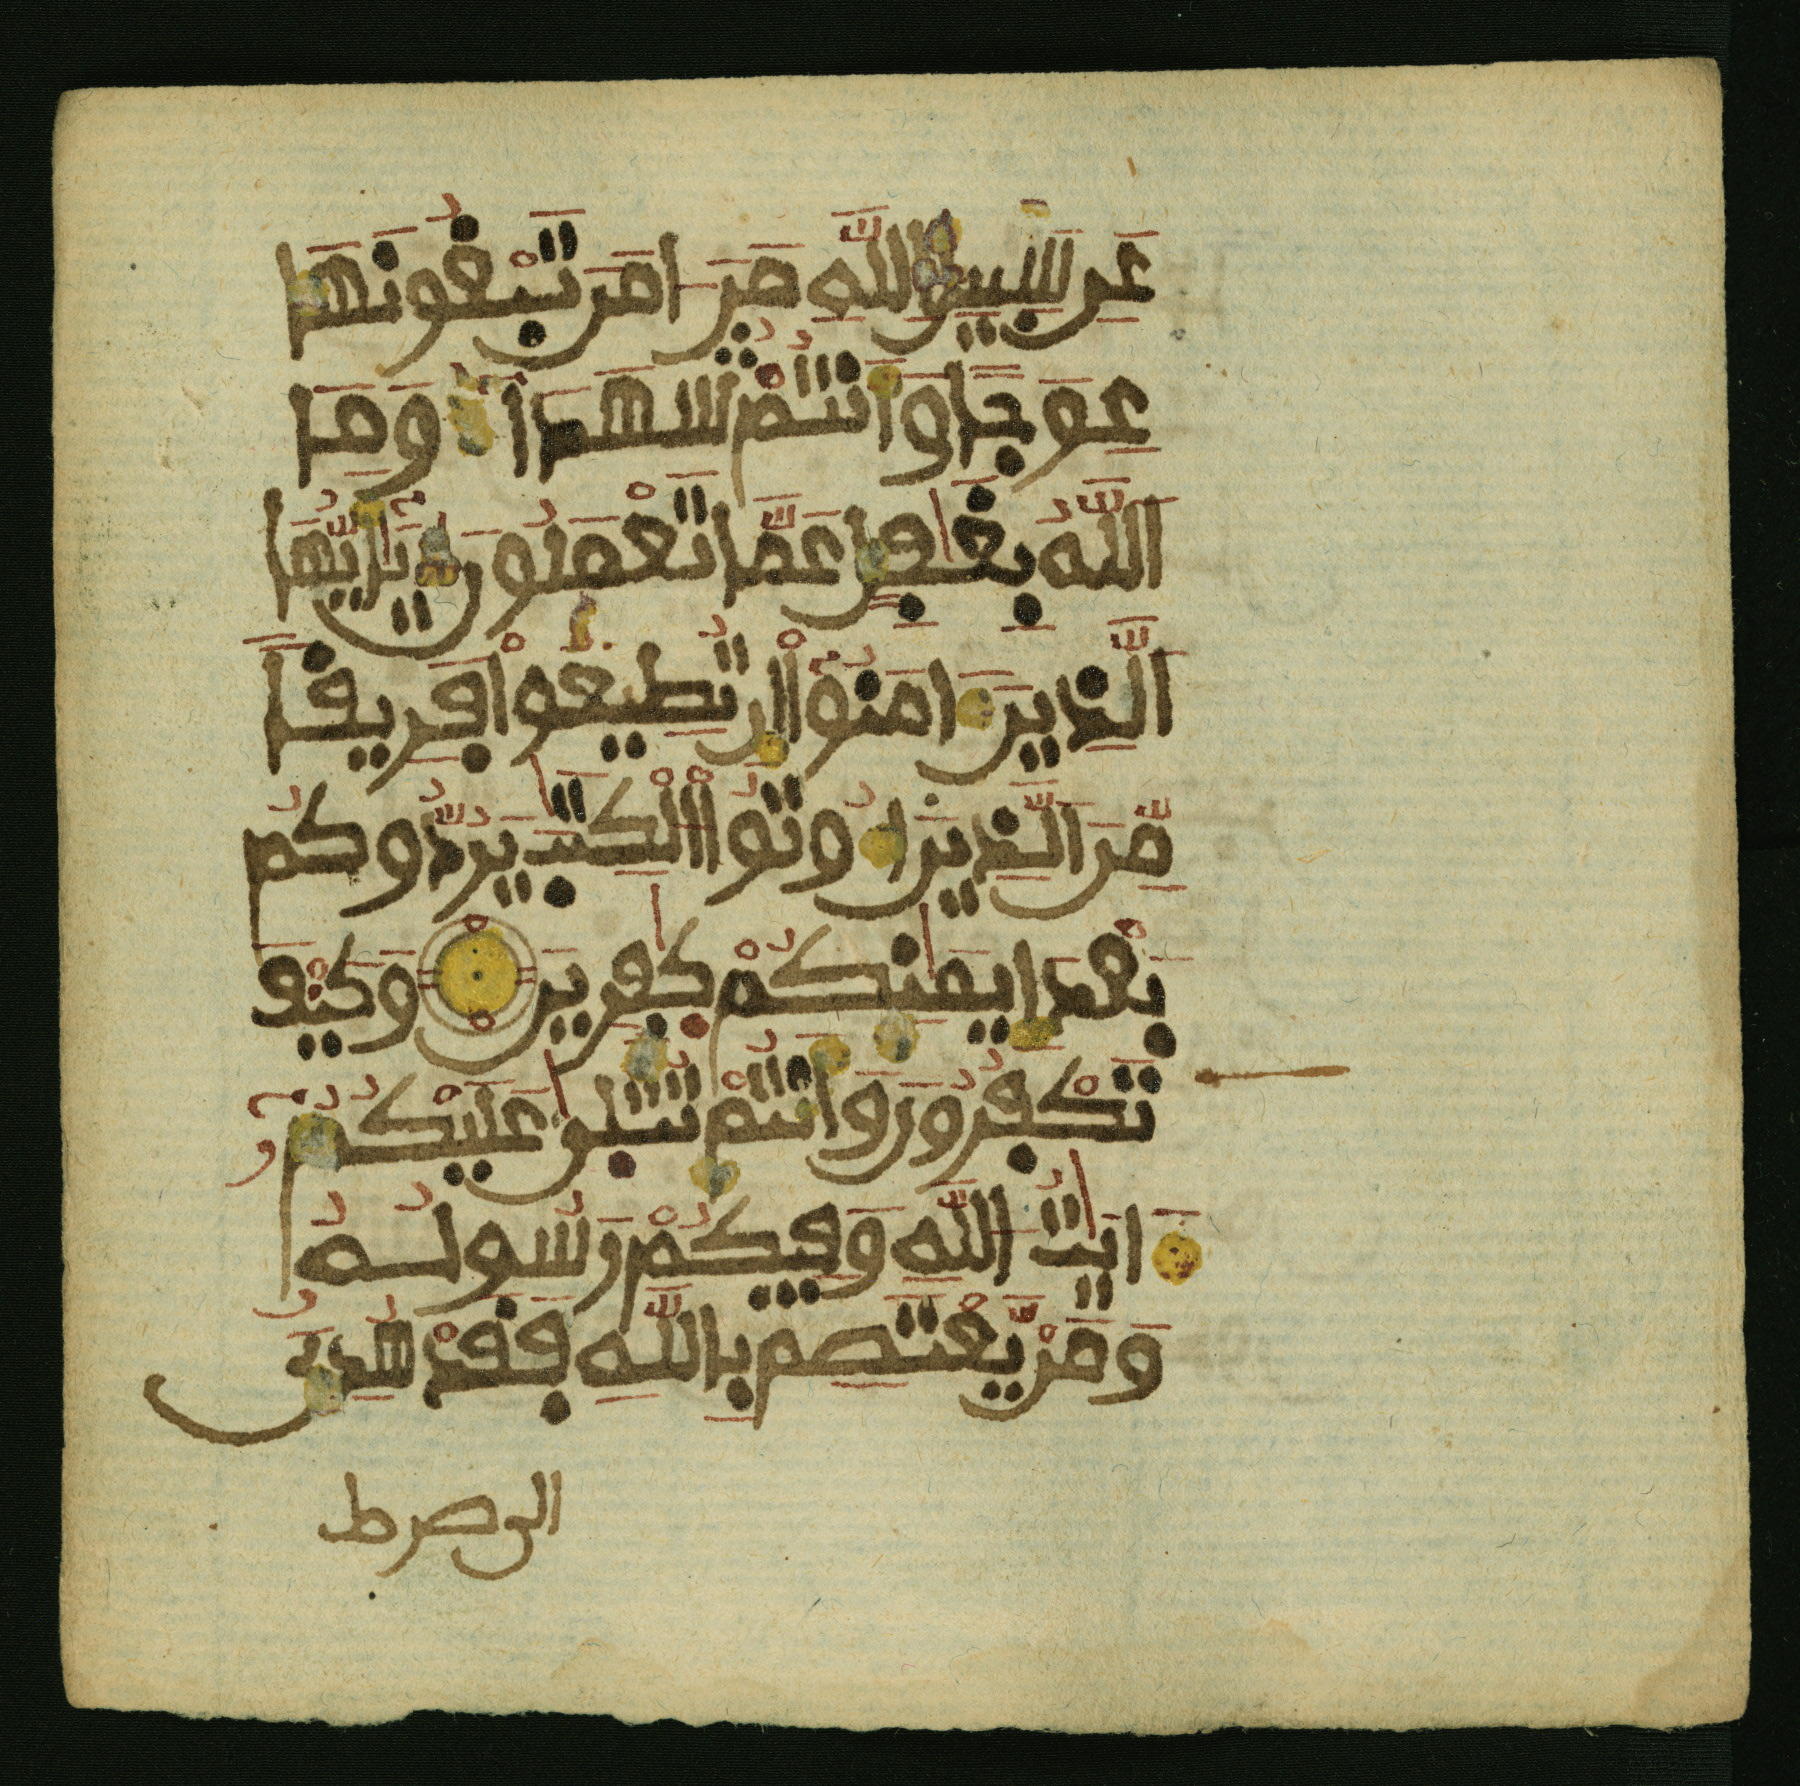 عَن سَبِيلِ اللَّهِ مَنَ امَنَ تَبْغُونَهَا
عِوَجًا وَأَنتُمْ شُهَدَآءُ وَمَا
اللَّهُ بِغَٰفِلٍ عَمَّا تَعْمَلُونَ يَٰٓأَيُّهَا
الَّذِينَ ءَامَنُوٓا إِن تُطِيعُوا فَرِيقًا
مِّنَ الَّذِينَ أُوتُوا الْكِتَٰبَ يَرُدُّوكُم
بَعْدَ إِيمَٰنِكُمْ كَٰفِرِينَ وَكَيْفَ
تَكْفُرُونَ وَأَنتُمْ تُتْلَىٰ عَلَيْكُمُۥٓ
ءَايَٰتُ اللَّهِ وَفِيكُمْ رَسُولُهُۥ
وَمَنْ يَّعْتَصِم بِاللَّهِ فَقَدْ هُدِيَ
الى صرط